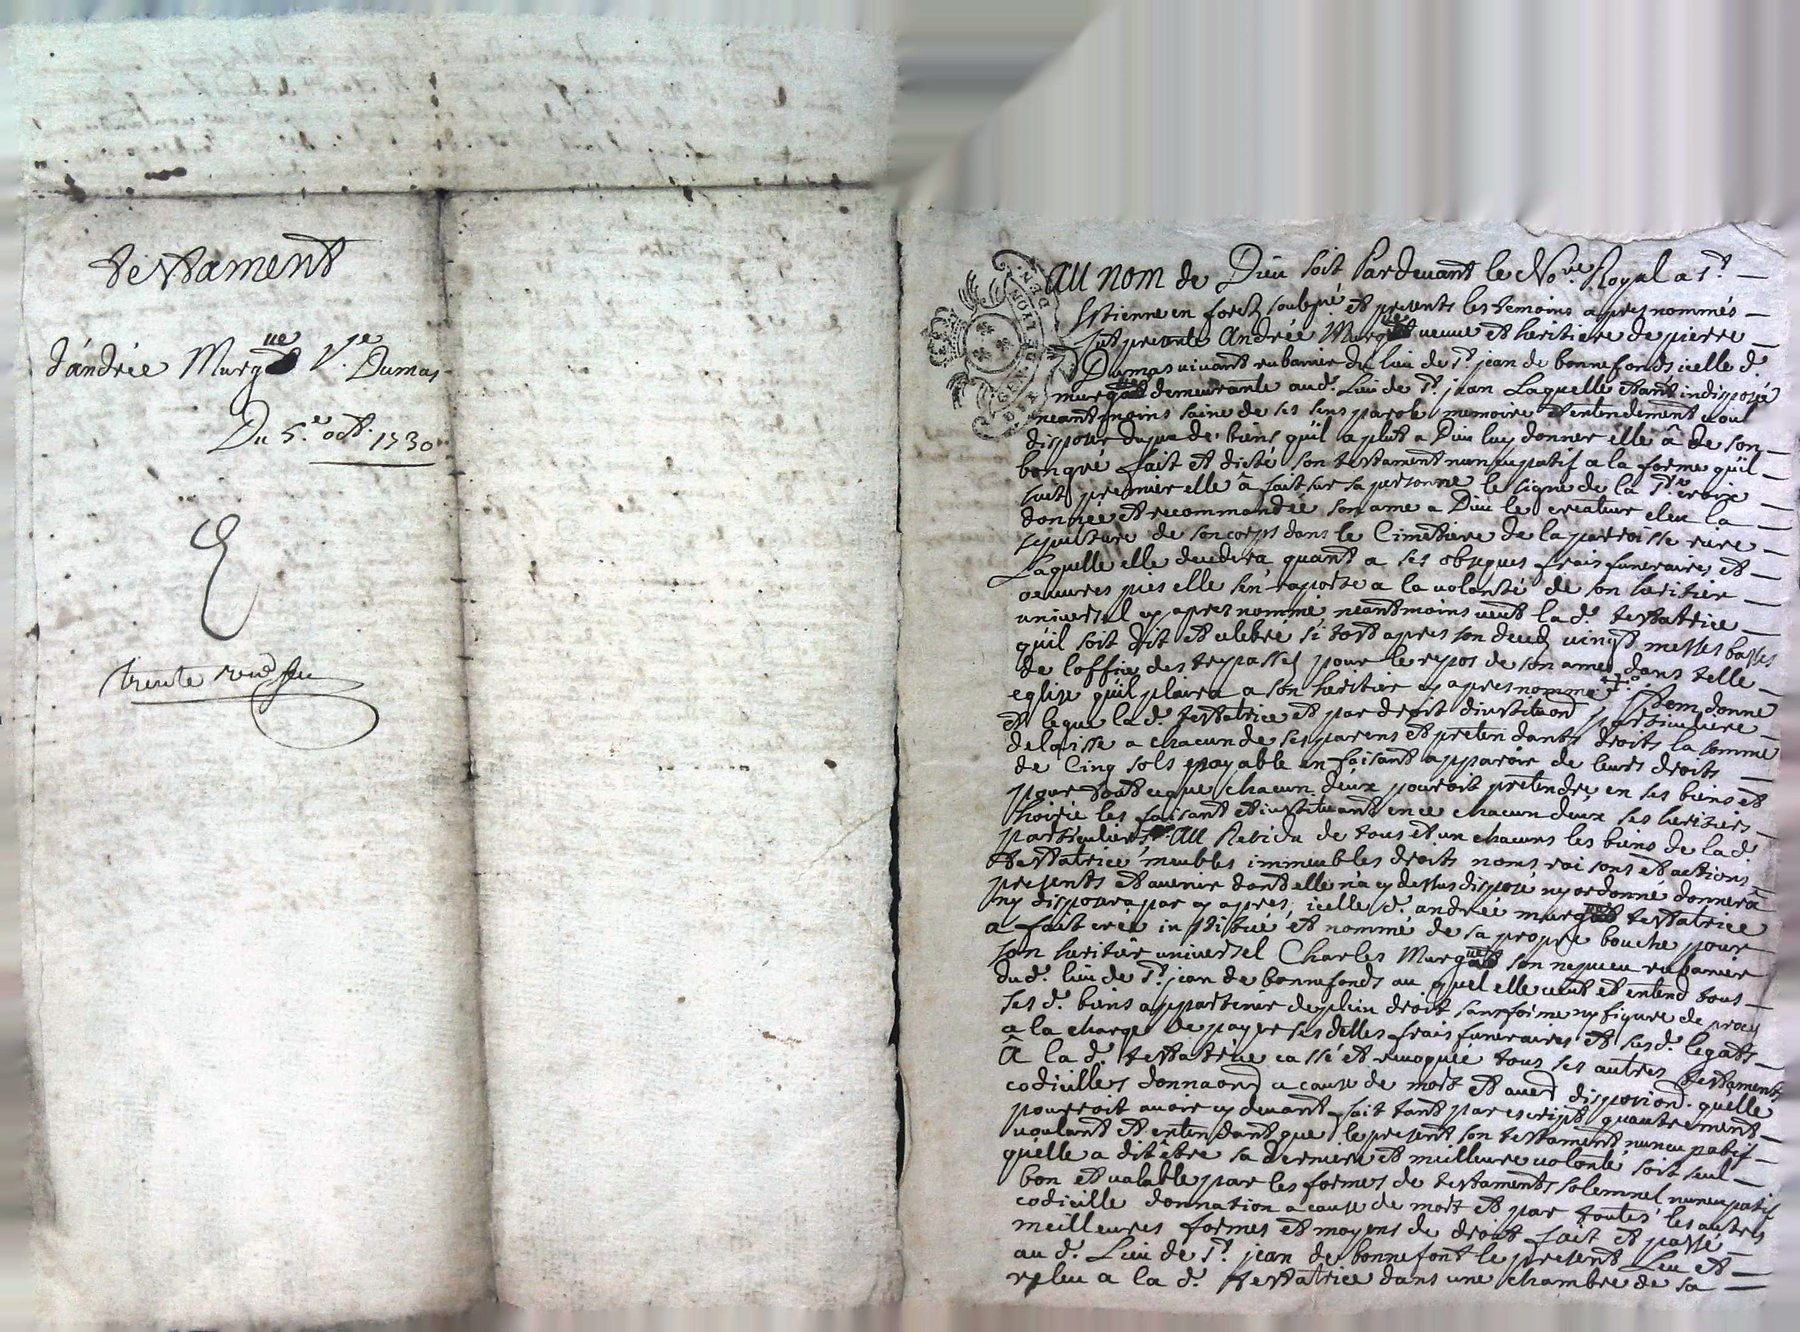 testament
d'andrée Murg ue V.e Dumas
Du 5.e oct. 1730
trente
GEN DE LYON
AU nom de Dieu soit Pardevant le No.re Royal a S.t
Estienne en forez soubsné et presents les temoins apres nommés
fut presente Andrée Murgue veuve et heritiere de pierre
Dumas vivant rubanier du lieu de S.t jean de bonnefonds icelle d.
murgue demeurante aud. Lieu de S.t jean Laquelle etant indisposée
neantmoins saine de ses sens parole memoire et entendement voul
disposer du peu de biens qu'il a plut a Dieu luy donner elle â de son
bon gré fait et dicté son testament nuncupatif a la forme qu'il
suit premier elle â fait sur sa personne le signe de la S.te croix
donnée et recommandée son ame a Dieu le createur eleu la
sepulture de son corps dans le Cimetiere de la parroisse rure
Laquelle elle decedera quant a ses obseques frais funeraires et
oeuvres pies elle s'en raporte a la volonté de son heritier
universel cy apres nommé neantmoins veut la d. testatrice
qu'il soit dit et celebré si tost apres son deced vingt messes basses
de l'office des trepassez pour le repos de son ame dans telle
eglize qu'il plaira a son heritier cy apres nommé Item donne
et legue la d. testatrice et par droit d'instituon particuliere
delaisse a chacun de ses parens et pretendants droits la somme
de Cinq sols payable en faisant apparoir de leurs droits
pour tout ce que chacun d'eux pouroit pretendre en ses biens et
hoirie les faisant et instituant en ce chacun deux ses heritiers
particuliers. AU Residu de tous et un chacuns les biens de lad.
testatrice meubles immeubles droits noms raisons et actions
presents et avenir dont elle n'a cy dessus disposé ny ordonné donnera
ny disposera par cy apres icelle d. andrée murgue testatrice
a fait créé institué et nommé de sa propre bouche pour
son heritier universel Charles Murgue son nepveu rubanier
dud. lieu de S.t jean de bonnefonds au quel elle veut et entend tous
ses d. biens appartenir de plein droit sans forme ny figure de proces
a la charge de payer ses dettes frais funeraires et sesd. legats
Â la d. testatrice cassé et revoquée tous ses autres testaments
codicilles donnaons a cause de mort et autre disposion. qu'elle
pourroit avoir cy devant fait tant par escript qu'autrement
voulant et entendant que le present son testament nuncupatif
qu'elle a dit être sa derniere et meilleure volonté soit seul
bon et valable par les formes de testaments solemnel nuncupatif
codicille donnation a cause de mort et par toutes les autres
meilleures formes et moyens de droit fait et passé
au d. Lieu de S.t jean de bonnefont le present Leu et
releu a la d. testatrice dans une chambre de sa